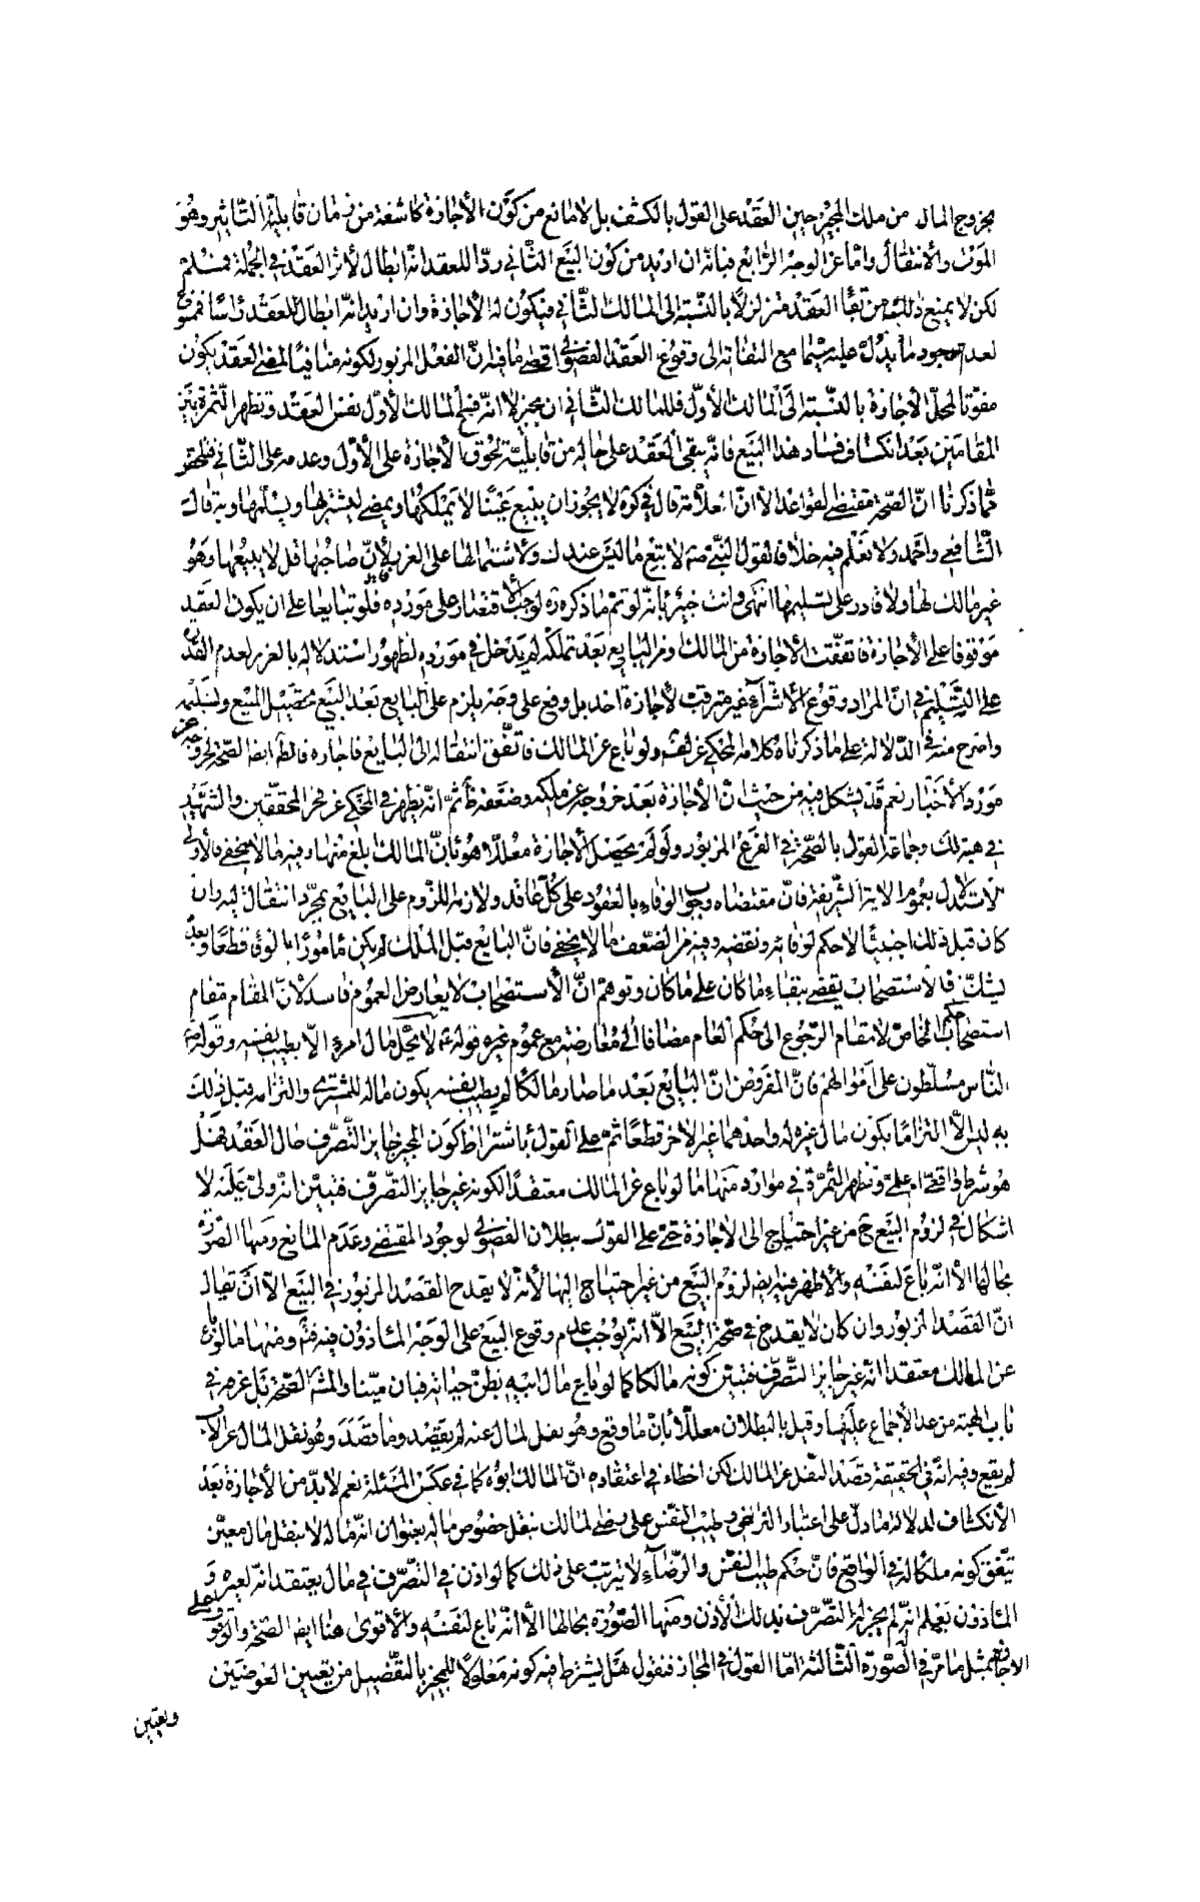 بخروج المال من ملك المجيز حين العقد على القول بالكشف بل لا مانع من كون الاجازة كاشفة من زمان قابلية التاثير وهو
الموت والانتقال وامّا عن الوجه الرّابع فبانّه ان اريد من كون البيع الثّاني ردّا للعقد انّه ابطال لأثر العقد في الجملة فمسلّم
لكن لا يمنع ذلك من بقاء العقد متزلزلاً بالنّسبة الى المالك الثّاني فيكون له الاجازة وان اريد انّه ابطال للعقد راسًا فممنوع
لعدم وجود ما يدلّ عليه سيّما مع التفاته الى وقوع العقد الفضولي اقصى ما فيه انّ الفعل المزبور لكونه منافيًا لمضي العقد يكون
مفوّتا لمحلّ الاجازة بالنّسبة الى المالك الأوّل فللمالك الثّاني ان يجيز الا انّه فسخ المالك الأوّل نفس العقد وتظهر الثّمرة بين
المقامين بعد انكشاف فساد هذا البيع فانّه يبقى العقد على حاله من قابليّة لحوق الاجازة على الأوّل وعدمه على الثّاني فظهر
ممّا ذكرنا انّ الصّحّة مقتضى القواعد الا انّ العلّامة قال في كره لا يجوز ان يبيع عينًا لا يملكها ويمضي ليشتريها ويسلّمها وبه قال
الشّافعي واحمد ولا نعلم فيه خلافا لقول النّبي صه لا تبع ما ليس عندك ولاشتمالها على الغرر لأنّ صاحبها قد لا يبيعها وهو
غير مالك لها ولا قادر على تسليمها انتهى وانت خبير بانّه لو تمّ ما ذكره ره لوجب الاقتصار على مورده فلو تبايعا على ان يكون العقد
موقوفا على الاجازة فاتفقت الاجازة من المالك او من البايع بعد تملّكه لم يدخل في مورده لظهور استدلاله بالغرر لعدم القدرة
على التسليم في انّ المراد وقوع الاشتراء غير مترقب لاجازة احد بل وقع على وجه يلزم على البايع بعد البيع تحصيل المبيع وتسليمه
واصرح منه في الدّلالة على ما ذكرناه كلامه المحكي عن لف ولو باع عن المالك فاتّفق انتقاله الى البايع فاجازه فالظ ايضا الصّحّة لخروجه عن
مورد الأخبار نعم قد يشكل فيه من حيث انّ الاجازة بعد خروجه عن ملكه وضعفه ظ ثمّ انّه يظهر في المحكي عن فخر المحققين والشّهيد
في هبة لك وجماعة القول بالصّحّة في الفرع المزبور ولو لم يحصل الاجازة معلّلا هو بانّ المالك ابلغ منها وفيه ما لا يخفى فالأولى
الاستدلال بعموم الاية الشّريفة فانّ مقتضاه وجوب الوفاء بالعقود على كلّ عاقد ولازمه اللزوم على البايع بمجرّد انتقاله اليه وان
كان قبل ذلك اجنبيّا لا حكم لوفائه ونقضه وفيه من الضّعف ما لا يخفى فانّ البايع قبل الملك لم يكن مامورًا بالوفاء قطعًا وبعده
يشكّ فالاستصحاب يقضي ببقاء ما كان على ما كان وتوهّم انّ الاستصحاب لا يعارض العموم فاسد لأنّ المقام مقام
استصحاب حكم الخاصّ لا مقام الرّجوع الى حكم العام مضافا الى معارضته مع عموم غيره قوله عم لا يحلّ مال امرء الّا بطيب نفسه وقوله صه
النّاس مسلّطون على اموالهم فانّ المفروض انّ البايع بعد ما صار مالكا لم يطب نفسه بكون ماله للمشتري والتزامه قبل ذلك
به ليس الّا التزاما بكون مال غيره له واحدهما غير الاخر قطعًا ثمّ على القول باشتراط كون المجيز جايز التّصرّف حال العقد هل
هو شرط واقعي ام علمي وتظهر الثّمرة في موارد منها ما لو باع عن المالك معتقدا لكونه غير جايز التّصرّف فتبيّن انّه وليّ عليه لا
اشكال في لزوم البيع ح من غير احتياج الى الاجازة حتّى على القول ببطلان الفضولي لوجود المقتضي وعدم المانع ومنها الصّورة
بحالها الا انّه باع لنفسه والاظهر فيه ايضا لزوم البيع من غير احتياج اليها لأنّه لا يقدح القصد المزبور في البيع الّا ان يقال
انّ القصد المزبور وان كان لا يقدح في صحّة البيع الّا انّه يوجب عدم وقوع البيع على الوجه الماذون فيه فتم ومنها ما لو باع
عن المالك معتقدا انّه غير جايز التّصرّف فتبيّن كونه مالكا كما لو باع مال ابيه بظنّ حياته فبان ميّتا والمشهور الصّحّة بل عن مر في
باب الهبة من عد الاجماع عليها وقيل بالبطلان معلّلا بانّ ما وقع وهو نقل المال عنه لم يقصد وما قصد وهو نقل المال عن الاب
لم يقع وفيه انّه في الحقيقة قصد النّقل عن المالك لكن اخطاء في اعتقاده انّ المالك ابوه كما في عكس المسئلة نعم لا بدّ من الاجازة بعد
الانكشاف لدلالة ما دلّ على اعتبار التراضي وطيب النّفس على رضى المالك بنقل خصوص ماله بعنوان انّه ماله لا بنقل مال معيّن
يتّفق كونه ملكا له في الواقع فانّ حكم طيب النّفس والرّضاء لا يترتّب على ذلك كما لو اذن في التّصرّف في مال يعتقد انّه لغيره و
الماذون يعلم انّه له لم يجز له التّصرّف بذلك الأذن ومنها الصّورة بحالها الا انّه باع لنفسه والاقوى هنا ايضا الصّحّة والوقوف على
الاجازة بمثل ما مرّ في الصّورة الثّالثة امّا القول في المجاز فنقول هل يشترط فيه كونه معلومًا للمجيز بالتّفصيل من تعيين العوضين
وتعيين